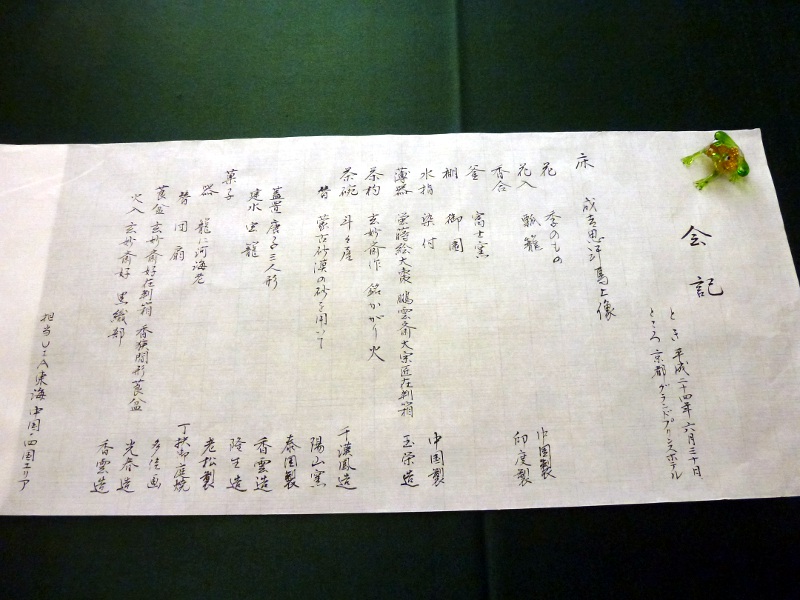 会記
とき 平成二十四年 六月三十日
ところ 京都 グランドプリンスホテル
床 成吉思汗馬上像
花 季のもの
花入 瓢籠 中国製
香合 印度製
釜 富士窯
棚 御園
水指 染付 中国製
薄器 蛍蒔絵大棗 鵬雲斎大宗匠在判箱 玉栄造
茶杓 玄妙斎作 銘かがり火
茶碗 斗々屋 千漢鳳造
替 蒙古砂漠の砂を用いて 陽山窯
蓋置 唐子三人形 泰国製
建水 虫籠 香雲造
隆生造
菓子 老松製
器 龍に河海老 丁抹御庭焼
替 団扇 多佳画
莨盆 玄妙斎好在判箱 香狭間形莨盆 光春造
火入 玄妙斎好 黒織部 香雲造
担当 UIA東海 中国・四国エリア